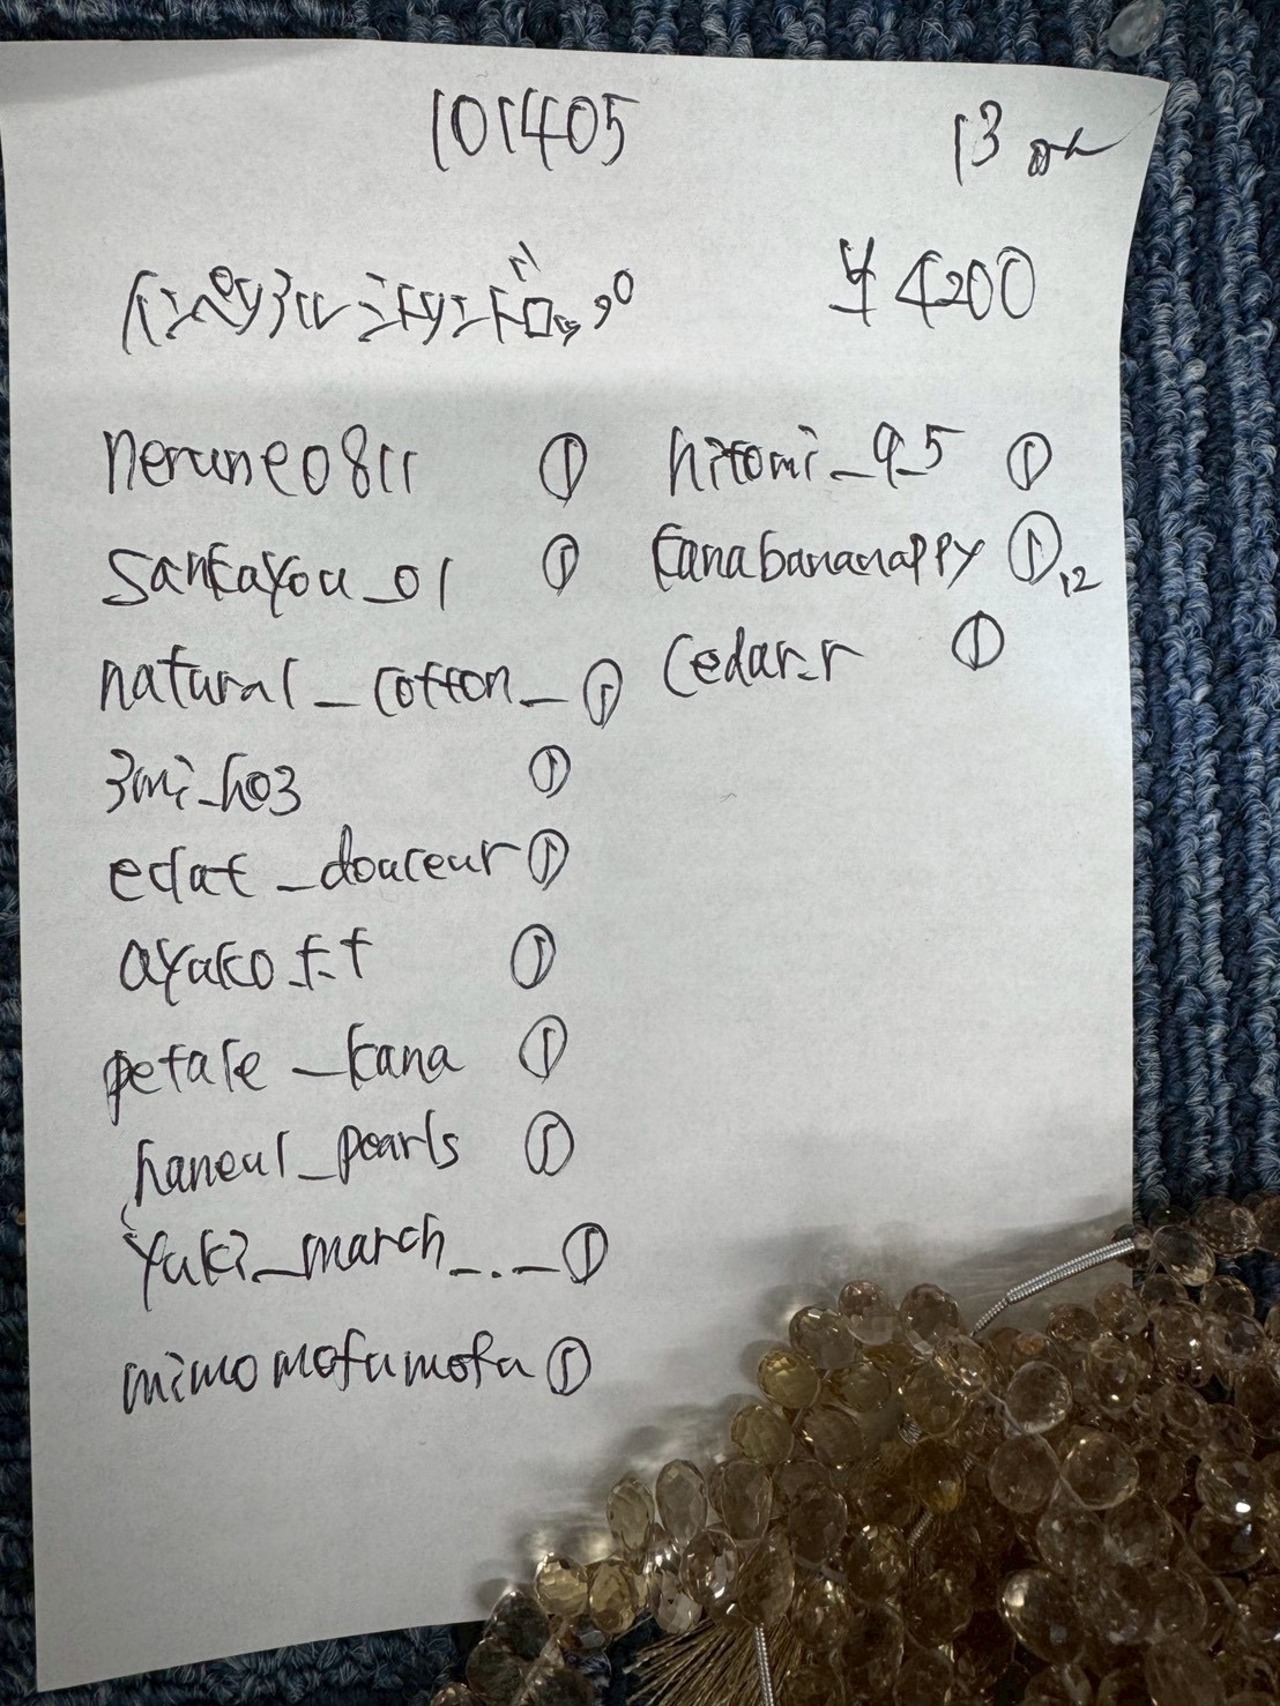 101405
13 ok
インペリアルミャンマードロップ
¥4200
nerune0811 ①
sankayou_01 ①
natural_cotton_ ①
3mi_ho3 ①
eclat_douceur ①
ayako.t.t ①
petale_kana ①
haneul_pearls ①
yuki_march_._ ①
mimomofumofu ①
hitomi_9_5 ①
kanabananappy ①,12
cedar.r ①